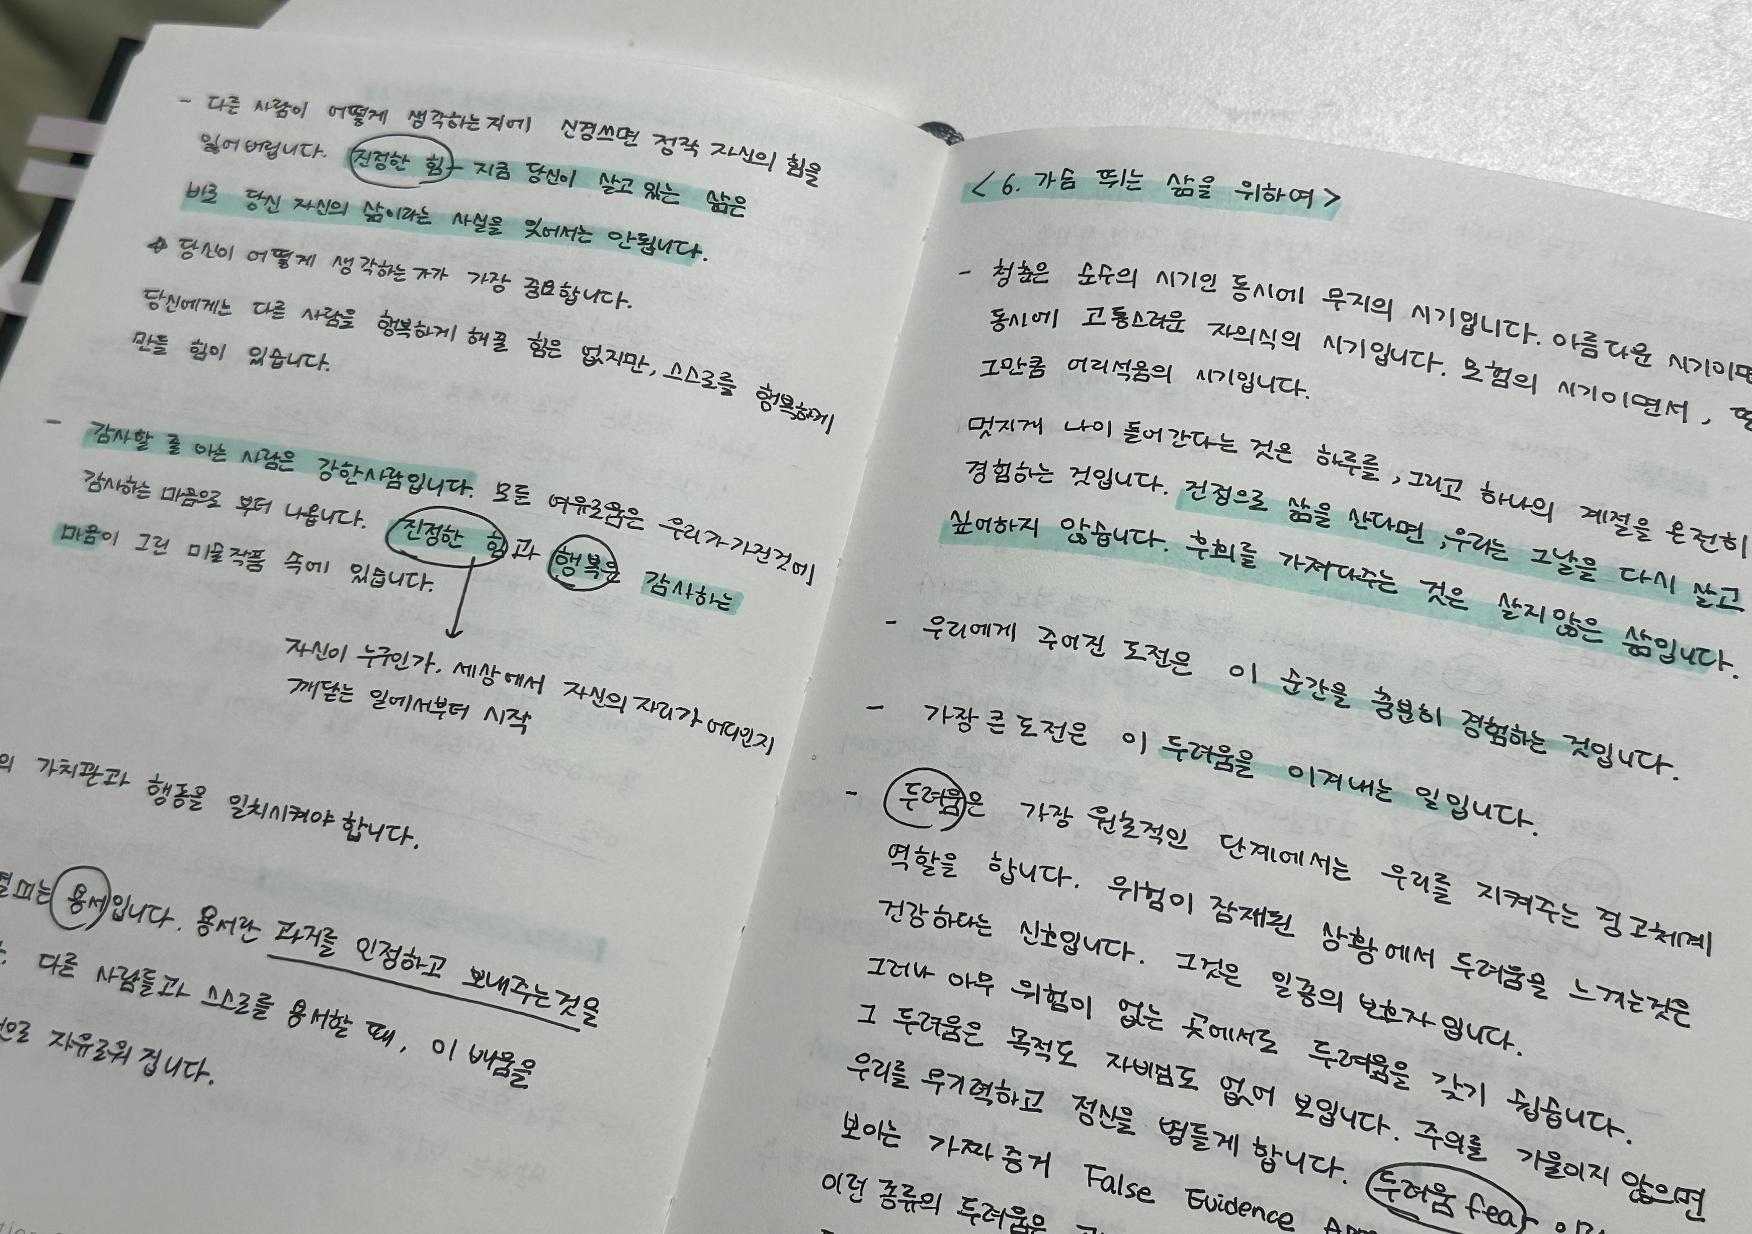 - 다른 사람이 어떻게 생각하는지에 신경쓰면 정작 자신의 힘을
잃어버립니다. 진정한 힘 - 지금 당신이 살고 있는 삶은
바로 당신 자신의 삶이라는 사실을 잊어서는 안됩니다.
당신이 어떻게 생각하는가가 가장 중요합니다.
당신에게는 다른 사람을 행복하게 해줄 힘은 없지만, 스스로를 행복하게
만들 힘이 있습니다.
- 감사할 줄 아는 사람은 강한사람입니다. 모든 여유로움은 우리가 가진것에
감사하는 마음으로 부터 나옵니다. 진정한 힘과 행복은 감사하는
마음이 그린 미술작품 속에 있습니다.
자신이 누구인가, 세상에서 자신의 자리가 어디인지
깨닫는 일에서부터 시작
의 가치관과 행동을 일치시켜야 합니다.
용서입니다. 용서란 과거를 인정하고 보내주는것을
다른 사람들과 스스로를 용서할 때, 이 배움을
으로 자유로워 집니다.
< 6. 가슴 뛰는 삶을 위하여 >
- 청춘은 순수의 시기인 동시에 무지의 시기입니다. 아름다운 시기이면
동시에 고통스러운 자의식의 시기입니다. 모험의 시기이면서,
그만큼 어리석음의 시기입니다.
멋지게 나이 들어간다는 것은 하루를, 그리고 하나의 계절을 온전히
경험하는 것입니다. 진정으로 삶을 산다면, 우리는 그날을 다시 살고
싶어하지 않습니다. 후회를 가져다주는 것은 살지 않은 삶입니다.
- 우리에게 주어진 도전은 이 순간을 충분히 경험하는 것입니다.
- 가장 큰 도전은 이 두려움을 이겨내는 일입니다.
- 두려움은 가장 원초적인 단계에서는 우리를 지켜주는 경고체계
역할을 합니다. 위험이 잠재된 상황에서 두려움을 느끼는것은
건강하다는 신호입니다. 그것은 일종의 보호자입니다.
그러나 아무 위험이 없는 곳에서도 두려움을 갖기 쉽습니다.
그 두려움은 목적도 자비심도 없어 보입니다. 주의를 기울이지 않으면
우리를 무기력하고 정신을 병들게 합니다. 두려움 fear
보이는 가짜 증거 False Evidence
이런 종류의 두려움은